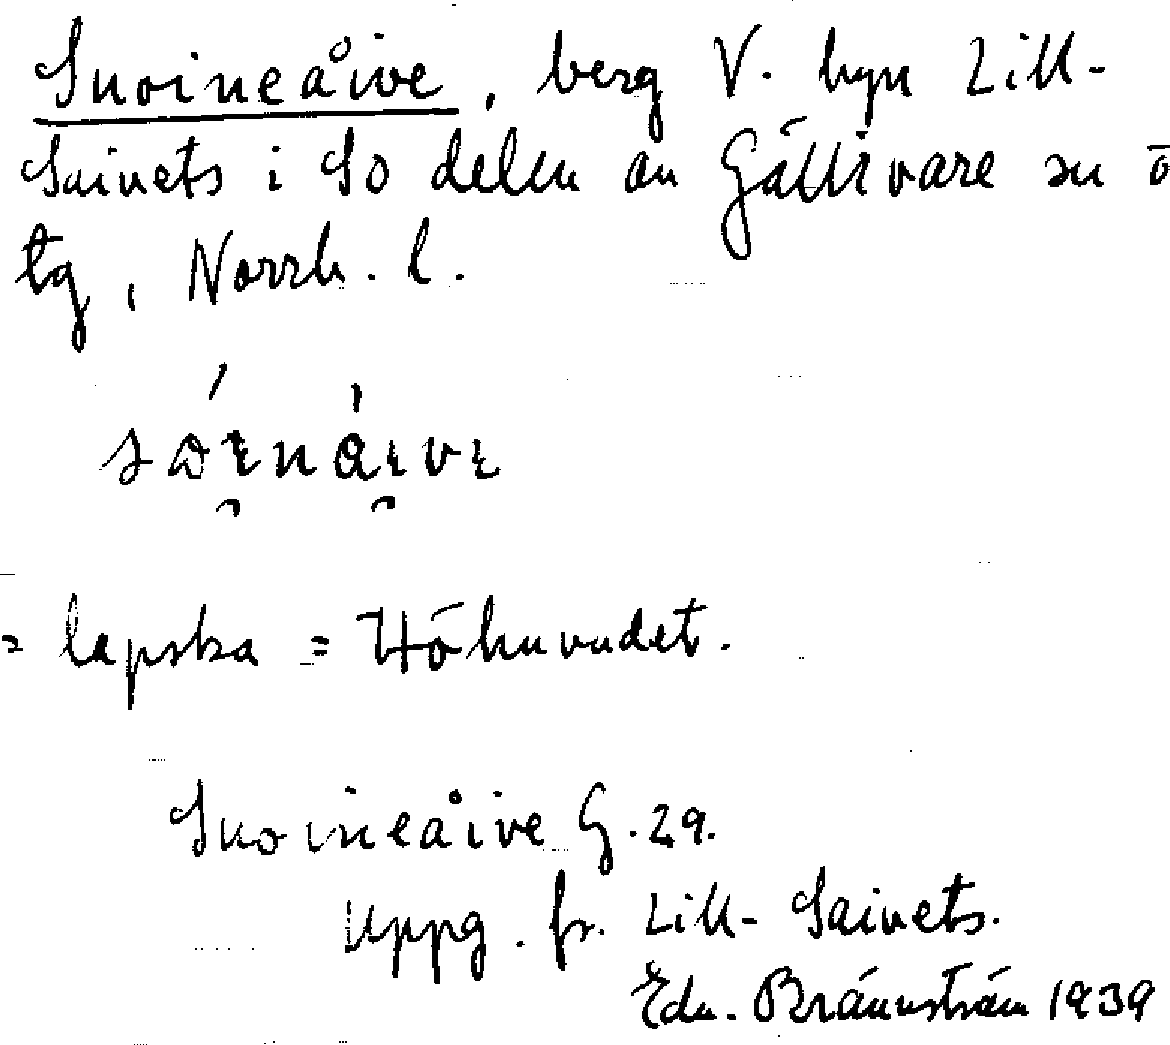 Suoineåive, berg V. byn Lill-
Saivets i SO delen av Gällivare sn o
tg, Norrb. l.
= lapska = Höhuvudet.
Suoineåive G. 29.
Uppg. fr. Lill-Saivets.
Edv. Brännström 1939